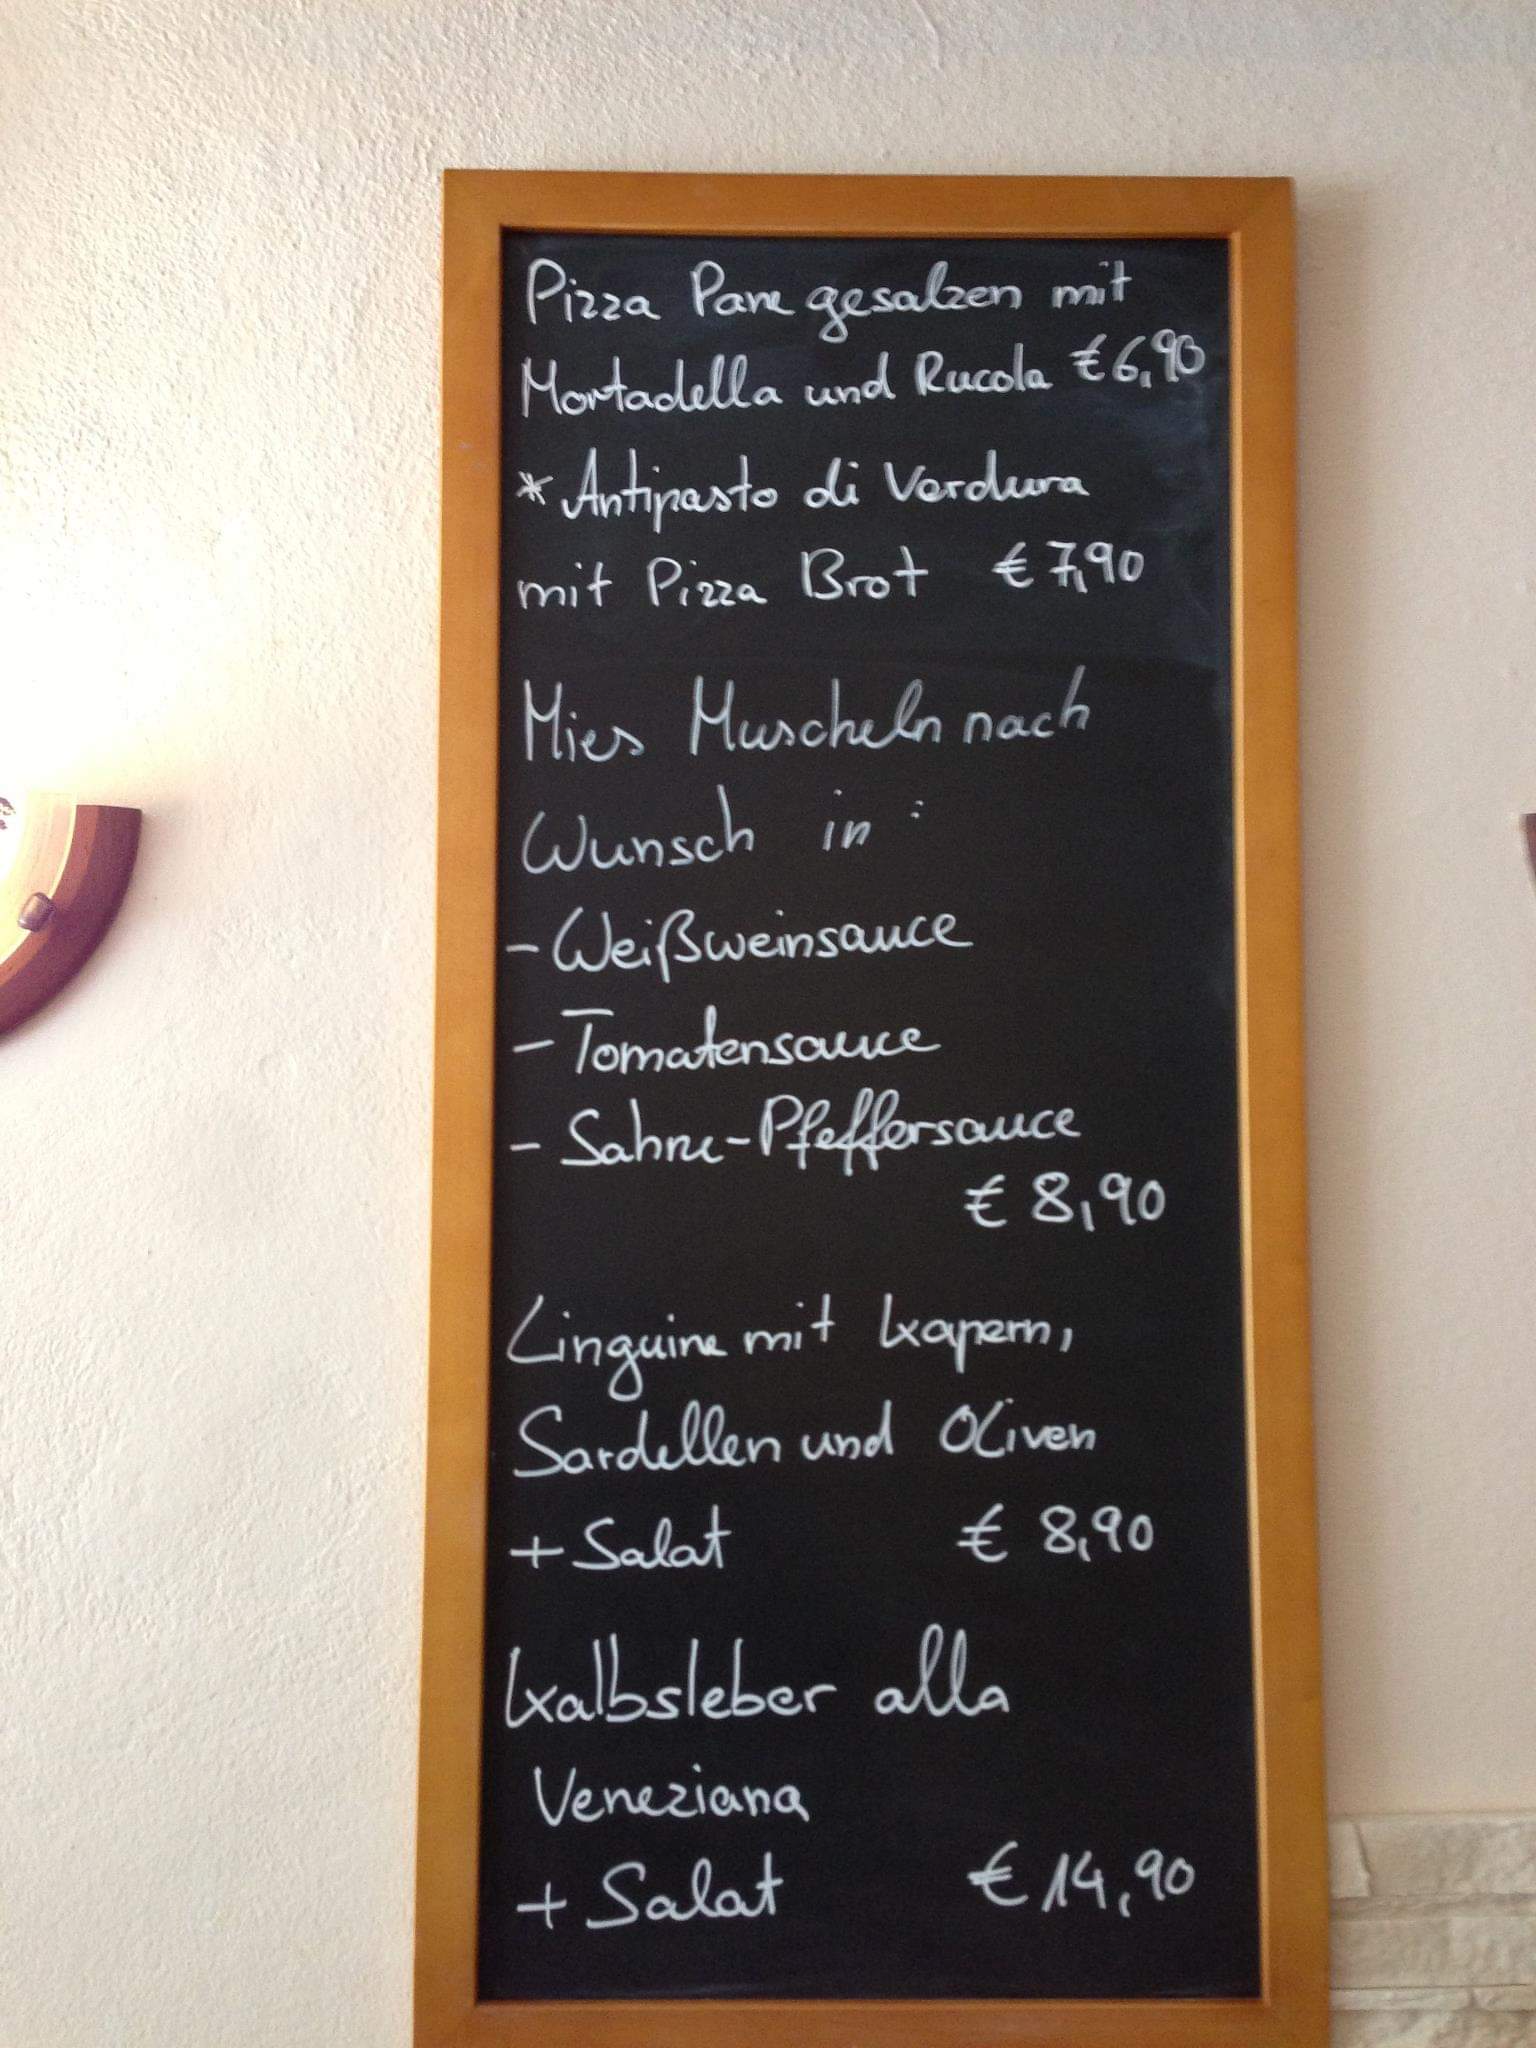 Pizza Pane gesalzen mit
Mortadella und Rucola € 6,90
* Antipasto di Verdura
mit Pizza Brot € 7,90
Mies Muscheln nach
Wunsch in :
- Weißweinsauce
- Tomatensauce
- Sahne-Pfeffersauce
€ 8,90
Linguine mit Kapern,
Sardellen und Oliven
+ Salat € 8,90
Kalbsleber alla
Veneziana
+ Salat € 14,90